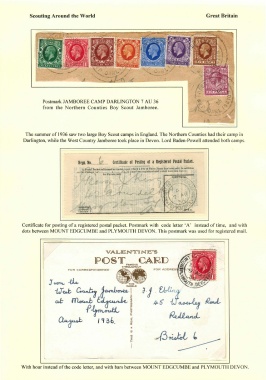 Scouting Around the World
Great Britain
Postmark JAMBOREE CAMP DARLINGTON 7 AU 36
from the Northern Counties Boy Scout Jamboree.
The summer of 1936 saw two large Boy Scout camps in England. The Northern Counties had their camp in
Darlington, while the West Country Jamboree took place in Devon. Lord Baden-Powell attended both camps.
Certificate of Posting of a Registered Postal Packet.
Certificate for posting of a registered postal packet. Postmark with code letter 'A' instead of time, and with
dots between MOUNT EDGCUMBE and PLYMOUTH DEVON. This postmark was used for registered mail.
VALENTINE'S
POST CARD
From the
West Country Jamboree
at Mount Edgcumbe
Plymouth
August 1936.
J. J. Ebling
45 Waverley Road
Redland
Bristol 6
With hour instead of the code letter, and with bars between MOUNT EDGCUMBE and PLYMOUTH DEVON.